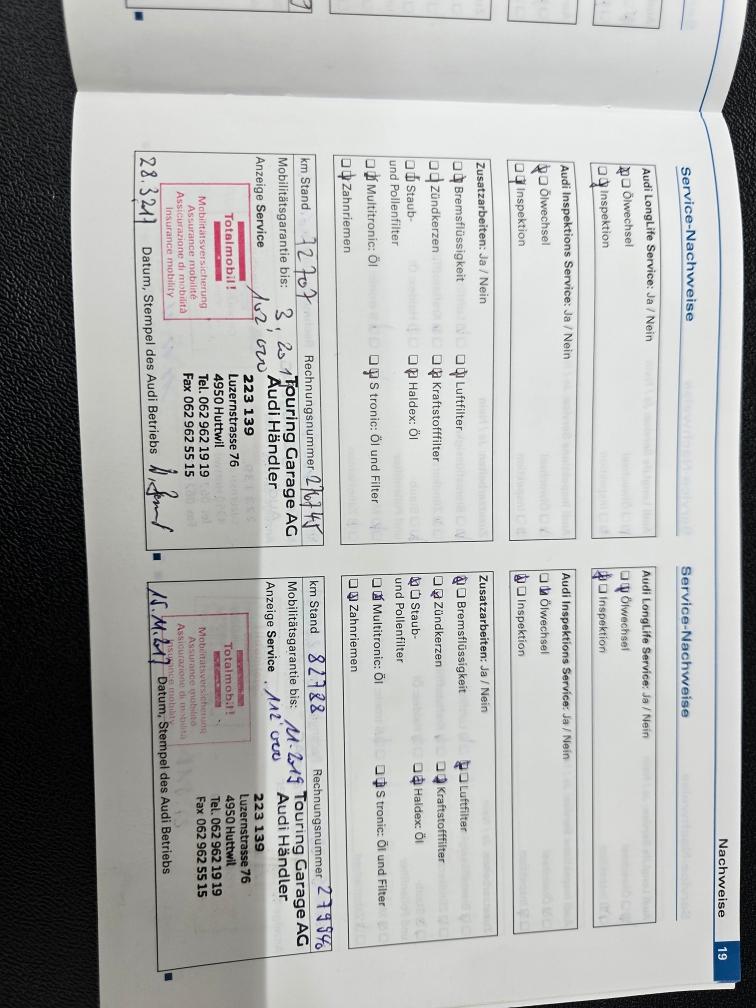 Nachweise 19
Service-Nachweise
Audi LongLife Service: Ja / Nein
Ölwechsel
Inspektion
Audi Inspektions Service: Ja / Nein
Ölwechsel
Inspektion
Zusatzarbeiten: Ja / Nein
Bremsflüssigkeit
Luftfilter
Zündkerzen
Kraftstofffilter
Staub-
und Pollenfilter
Haldex: Öl
Multitronic: Öl
S tronic: Öl und Filter
Zahnriemen
km Stand 72707 Rechnungsnummer
Mobilitätsgarantie bis:
Anzeige Service 102'000
Touring Garage AG
Audi Händler
223 139
Luzernstrasse 76
4950 Huttwil
Tel. 062 962 19 19
Fax 062 962 55 15
Totalmobil!
Mobilitätsversicherung
Assurance mobilité
Assicurazione di mobilità
Insurance mobility
28.3.217 Datum, Stempel des Audi Betriebs
Service-Nachweise
Audi LongLife Service: Ja / Nein
Ölwechsel
Inspektion
Audi Inspektions Service: Ja / Nein
Ölwechsel
Inspektion
Zusatzarbeiten: Ja / Nein
Bremsflüssigkeit
Luftfilter
Zündkerzen
Kraftstofffilter
Staub-
und Pollenfilter
Haldex: Öl
Multitronic: Öl
S tronic: Öl und Filter
Zahnriemen
km Stand 82788 Rechnungsnummer 279996
Mobilitätsgarantie bis: 11.2019
Anzeige Service 112'000
Touring Garage AG
Audi Händler
223 139
Luzernstrasse 76
4950 Huttwil
Tel. 062 962 19 19
Fax 062 962 55 15
Totalmobil!
Mobilitätsversicherung
Assurance mobilité
Assicurazione di mobilità
Insurance mobility
15.11.217 Datum, Stempel des Audi Betriebs